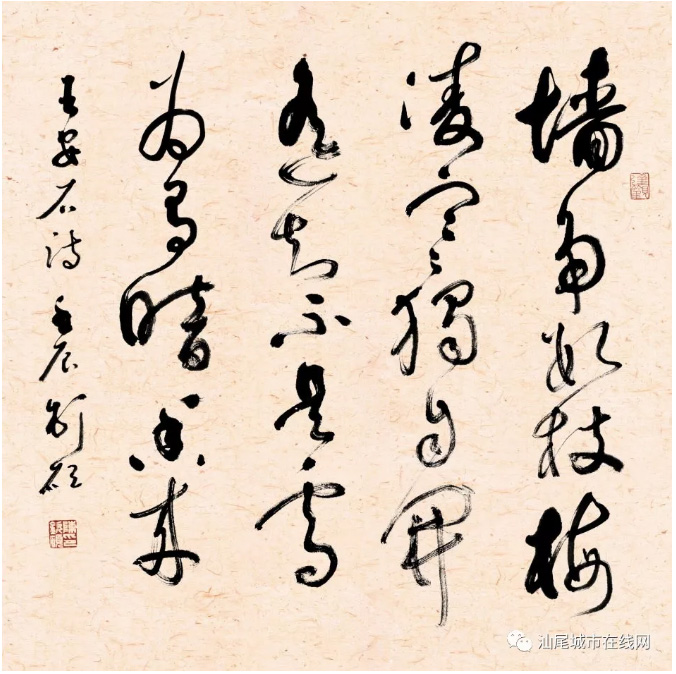 墙角数枝梅
凌寒独自开
遥知不是雪
为有暗香来
王安石诗 壬辰
汕尾城市在线网